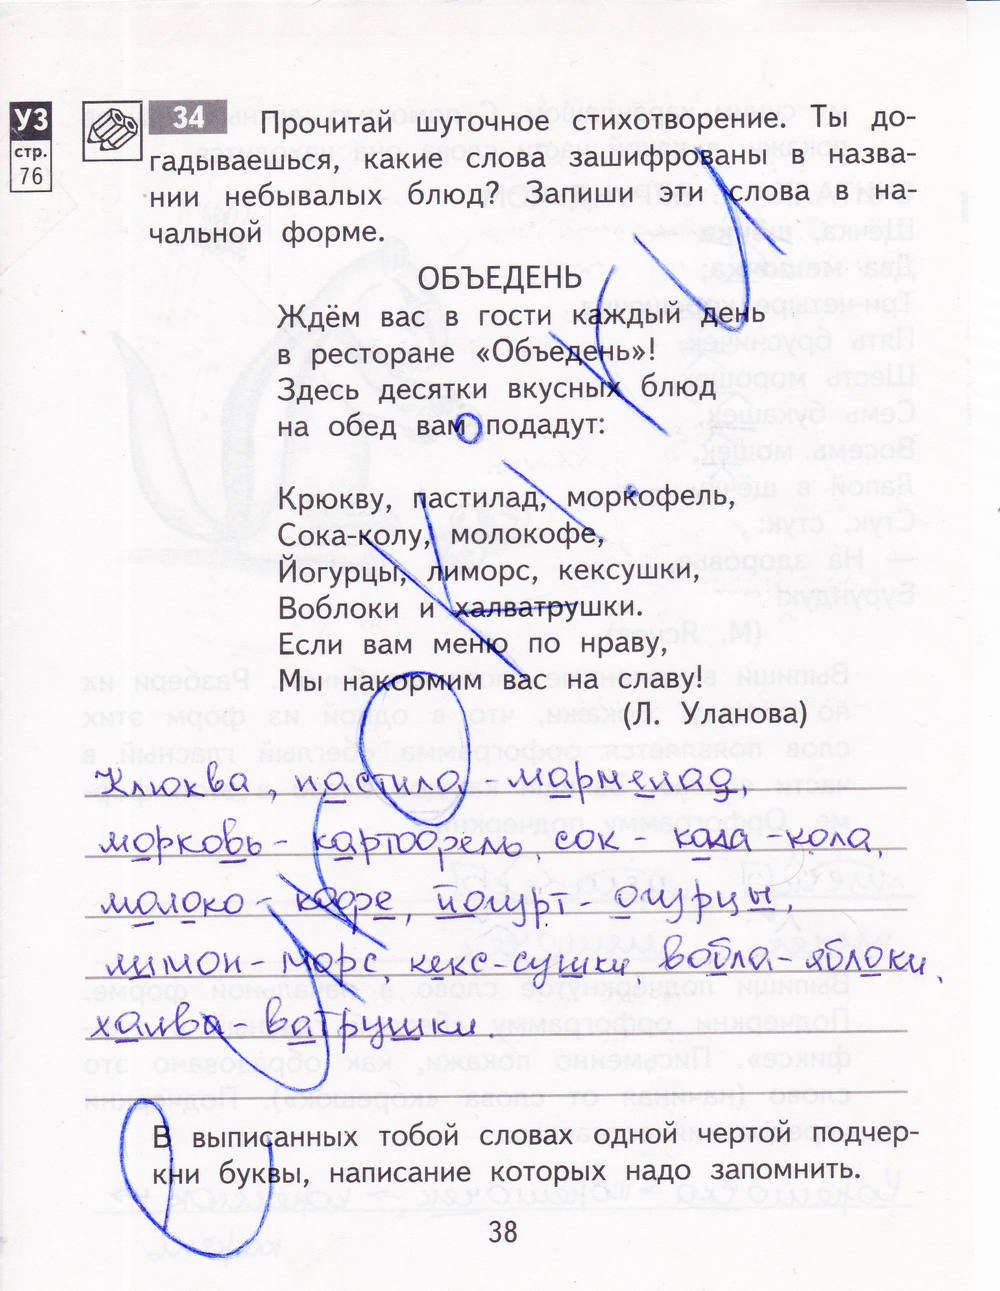 УЗ
стр.
76
34 Прочитай шуточное стихотворение. Ты до-
гадываешься, какие слова зашифрованы в назва-
нии небывалых блюд? Запиши эти слова в на-
чальной форме.
ОБЪЕДЕНЬ
Ждём вас в гости каждый день
в ресторане «Объедень»!
Здесь десятки вкусных блюд
на обед вам подадут:
Крюкву, пастилад, моркофель,
Сока-колу, молокофе,
Йогурцы, лиморс, кексушки,
Воблоки и халватрушки.
Если вам меню по нраву,
Мы накормим вас на славу!
(Л. Уланова)
Клюква, пастила - мармелад,
морковь - картофель, сок - кола-кола,
молоко - кофе, йогурт - огурцы,
лимон - морс, кекс-сушки, вобла-яблоки,
халва ватрушки.
В выписанных тобой словах одной чертой подчер-
кни буквы, написание которых надо запомнить.
38